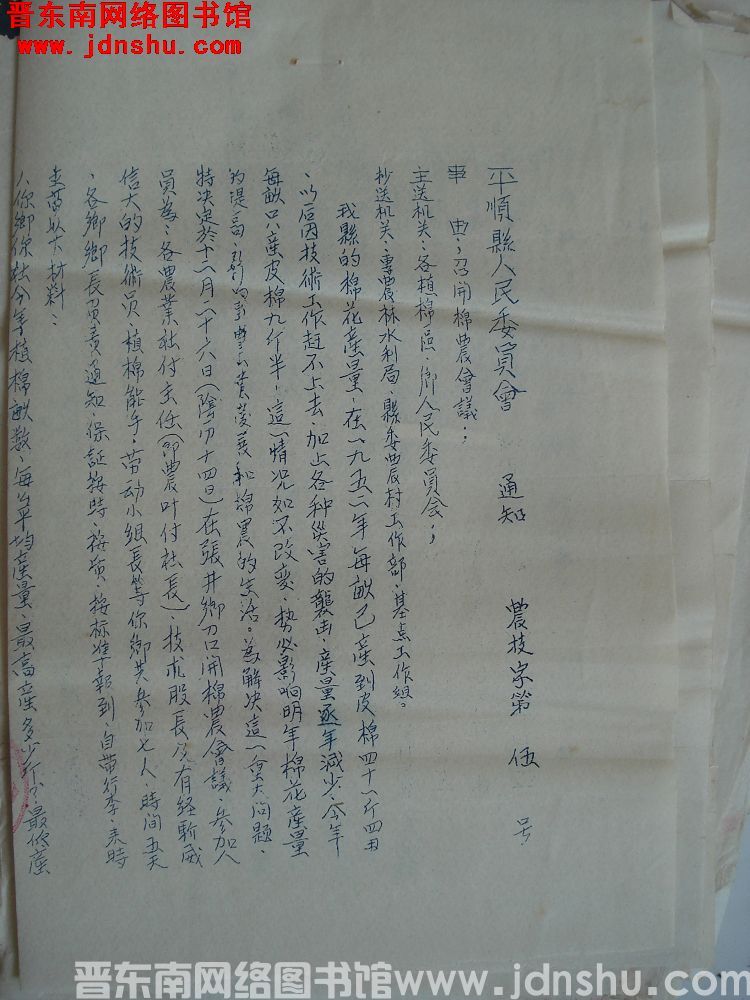 晋东南网络图书馆
www.jdnshu.com
平順縣人民委員會 通知 農技字第伍号
事由:召開棉農會議;
主送机关:各植棉區、鄉人民委員会;
抄送机关:專農林水利局、縣委農村工作部、基点工作組。
我縣的棉花產量,在一九五二年每畝已產到皮棉四十一斤四两
、以后因技術工作赶不上去,加上各种災害的襲击,產量逐年減少,今年
每畝只產皮棉九斤半,這一情况如不改变,势必影响明年棉花產量
的提高,和棉農的生活。為解决這一重大问題、
特决定於十二月二十六日(陰 十四日)在張井鄉召開棉農會議,参加人
員為:各農業社付主任(即農叶付社長)、技术股長及有経驗威
信大的技術員、植棉能手、劳动小組長等你鄉共参加七人,時间五天
、各鄉鄉長負責通知,保証按時、按質、按标准報到,自带行李、来時
以下材料:
1、你鄉你社今年植棉畝数,每 平均產量,最高產多少斤,最低產
晋东南网络图书馆www.jdnshu.com